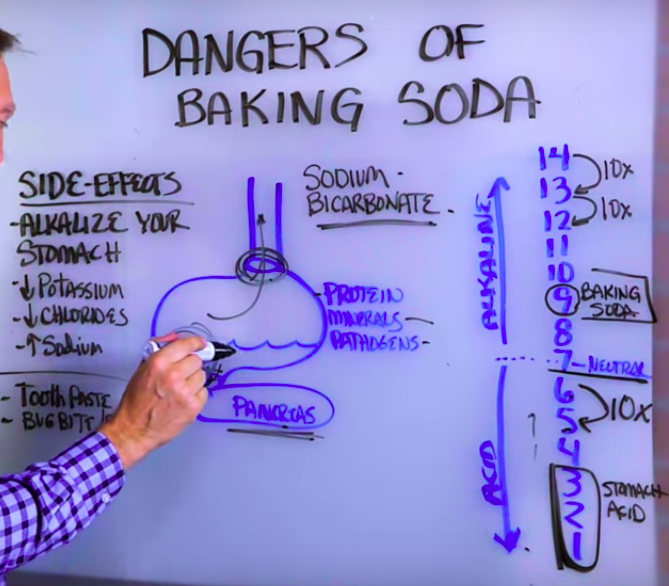 DANGERS OF
BAKING SODA
SIDE-EFFECTS
-ALKALIZE YOUR
STOMACH
-↓POTASSIUM
-↓CHLORIDES
-↑SODIUM
- TOOTH PASTE
- BUG BITE
SODIUM-
BICARBONATE.
-PROTEIN
MINERALS-
PATHOGENS-
PANCREAS
ALKALINE
ACID
14
10x
13
10x
12
11
10
9 BAKING
SODA
8
7 -NEUTRAL
6
10x
5
4
3
STOMACH
ACID
2
1